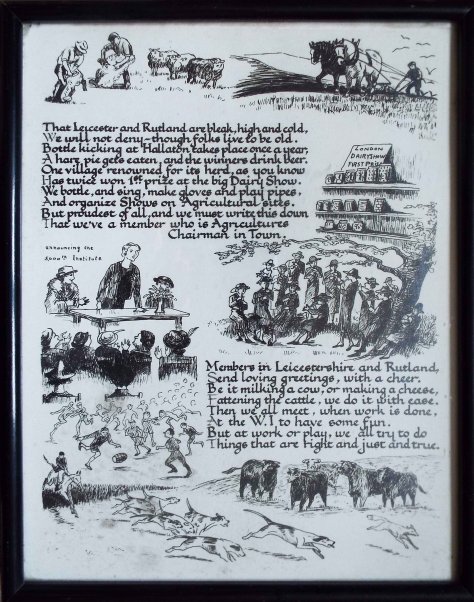 That Leicester and Rutland are bleak, high and cold,
We will not deny - though folks live to be old.
Bottle kicking at Hallaton takes place once a year,
A hare pie gets eaten, and the winners drink beer.
One village renowned for its herd, as you know
Has twice won 1st prize at the big Dairy Show.
We bottle, and sing, make gloves and play pipes,
And organize Shows on Agricultural sites.
But proudest of all, and we must write this down
That we've a member who is Agricultures
Chairman in Town.
LONDON
DAIRY SHOW
FIRST PRIZE
announcing the
5000th Institute
Members in Leicestershire and Rutland,
Send loving greetings, with a cheer.
Be it milking a cow, or making a cheese,
Fattening the cattle, we do it with ease.
Then we all meet, when work is done,
At the W.I. to have some fun.
But at work or play, we all try to do
Things that are right and just and true.